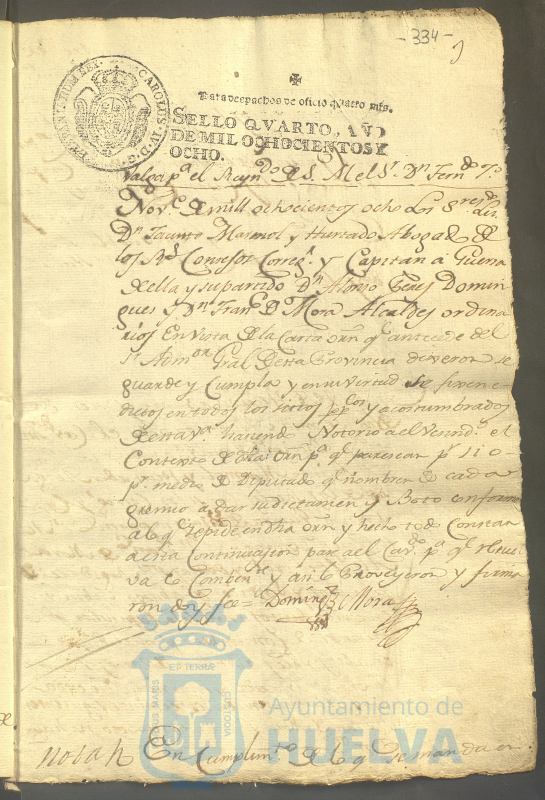 - 334 -
CAROLUS IV D. G. HISPANIAR. REX
Para despachos de oficio quatro mrs.
SELLO QVARTO, AÑO
DE MIL OCHOCIENTOS Y
OCHO.
Valga pª el Reynᵈᵒ de S. M el Sʳ. Dⁿ Fernᵈᵒ 7º
Novᵉ de mill ochocientos ocho Los Sʳᵉˢ
Dⁿ Jacinto Marmol y Hurtado Abogado de
los Rˢ Consejos Corregʳ. y Capitan a Guerra
de ella y su partido Dⁿ Alonso Domin
gues y Dⁿ Franᶜᵒ de Mora Alcaldes ordina
rios En vista de la Carta orñ qᵉ antecede del
Sʳ Admᵒʳ Gral de esta Provincia dixeron se
guarde y Cumpla y en su virtud se fixen e
dictos en todos los sitios ppᶜᵒˢ y acostumbrados
de esta Vª haciendo Notorio a el Vesindº el
Contexto de dha orñ pª qᵉ parescan pʳ si o
pʳ medio de Diputado qᵉ nombren de cada
gremio a dar su dictamen y Boto conforme
a lo qᵉ se pide en dha orñ y hecho todo Constar
a esta Continuacion pase a el Cavᵈᵒ pª qᵉ resuel
va lo Combenᵗᵉ y asi lo Proveyeron y firma
ron doy fee =
Mora
Notah En Cumplimᵗᵒ de lo qᵉ se manda en
PORTUS MARIS ET TERRÆ CUSTODIA
Ayuntamiento de
HUELVA